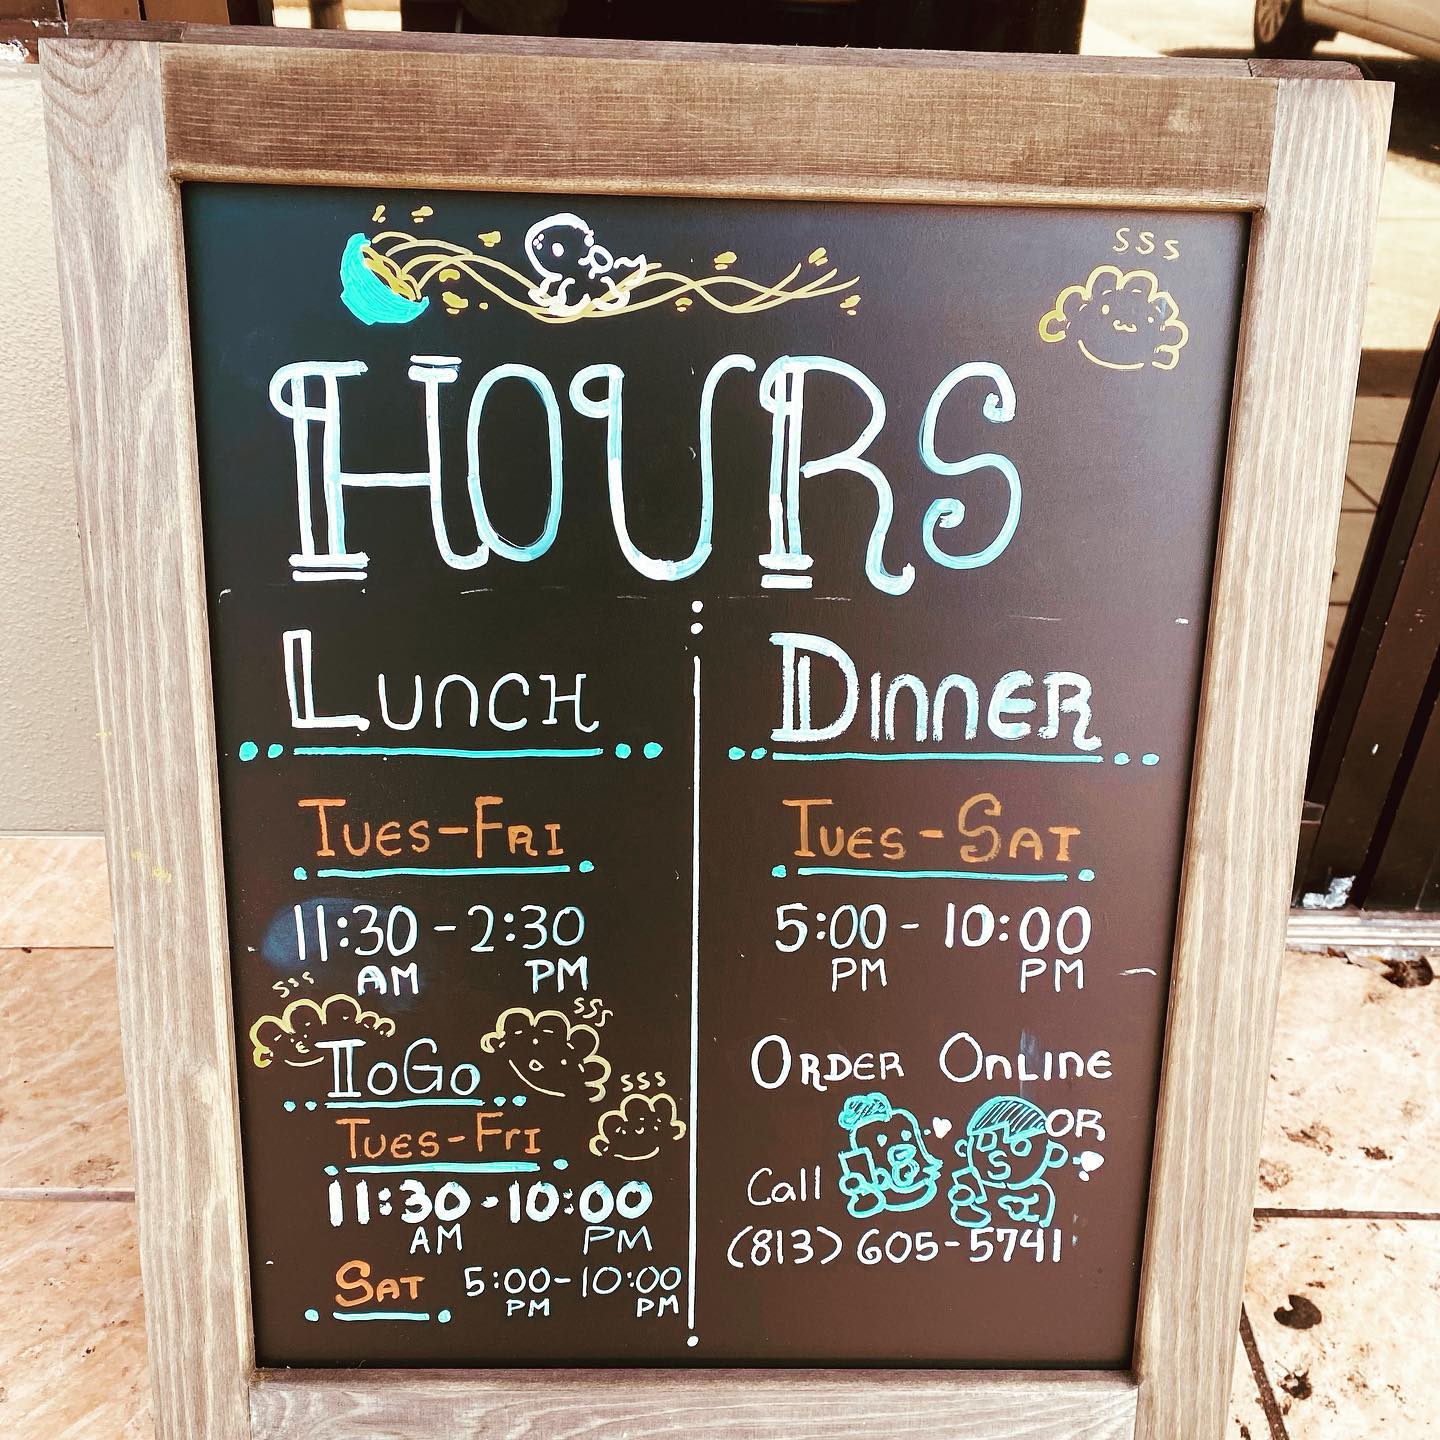 sss
HOURS
LUNCH
TUES-FRI
11:30 - 2:30
AM PM
sss
sss
TOGO
sss
TUES-FRI
11:30 - 10:00
AM PM
SAT 5:00-10:00
PM PM
DINNER
TUES-SAT
5:00 - 10:00
PM PM
ORDER ONLINE
OR
Call
(813) 605-5741